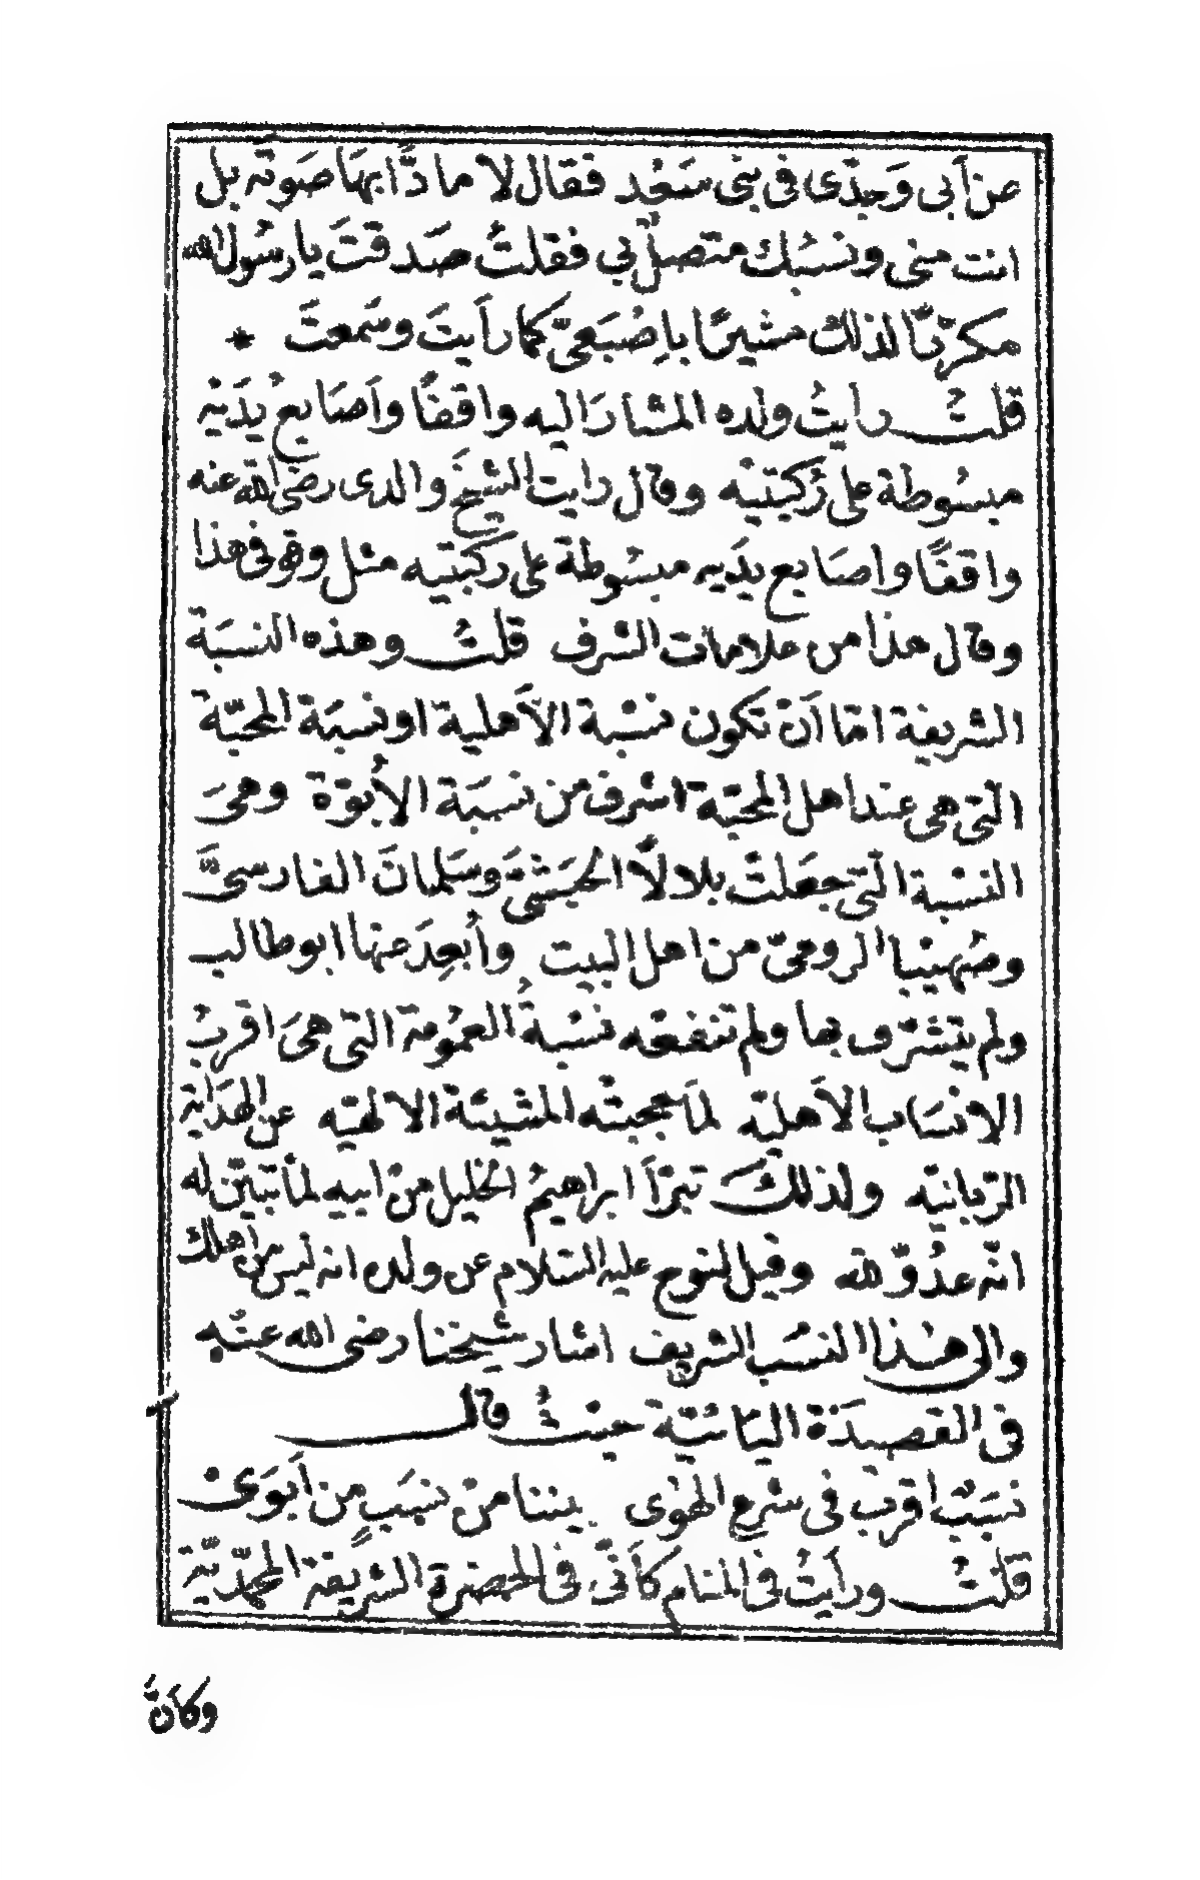 عن أبى وَجدّى فى بنى سَعْد فقال لا مادًّا بهَا صَوته بل
انت منى ونسَبك متصلٌ بى فقلتُ صَدقتَ يا رسُول الله
مكرّرًا لذلك مشيرًا باصْبَعىّ كما رأيتَ وسَمعتَ *
قلتُ رأيتُ ولده المشارَ اليه واقفًا وأصَابعُ يدَيْه
مبسُوطة على رُكبتيْه وقال رايت الشيخَ والدى رضى الله عنه
واقفًا واصَابع يدَيه مبسُوطة على ركبتيه مثل وقوفى هذا
وقال هذا من علامات الشرف قلتُ وهذه النسبَة
الشريفة امّا أن تكون نسْبة الأهلية او نسبَة المحبّة
التى هى عند اهل المحبّة اشرف من نسبَة الأبوّة وهىَ
النسْبة التى جعَلتْ بلالًا الحبَشىَّ وسَلمانَ الفارسىَّ
وصُهيْبا الرومىّ من اهل البيت وأُبعِدَ عنها ابو طالب
ولم يتشرّف بها ولم تنفعْه نسْبةُ العمُومة التى هىَ اقربُ
الانسَاب الأهليّه لمّا حجبتْه المشيئة الالهيّه عن الهدَاية
الربانيّه ولذلك تبرّأ ابراهيمُ الخليل من ابيه لمّا تبيّن له
انّه عدُوٌّ لله وقيل لنوح عليه السّلام عن ولده انه ليس من اهلك
والى هٰذا النسَب الشريف اشار شيخنا رضى الله عنْه
فى القصيدَة اليَائيّة حيثُ قال
نسَبٌ اقربُ فى شرعِ الهوٰى بيننا منْ نسَبٍ من أبوَىْ
قلتُ ورأيتُ فى المنام كأنّى فى الحضرة الشريفة المحمّديّة
وكأنَّ